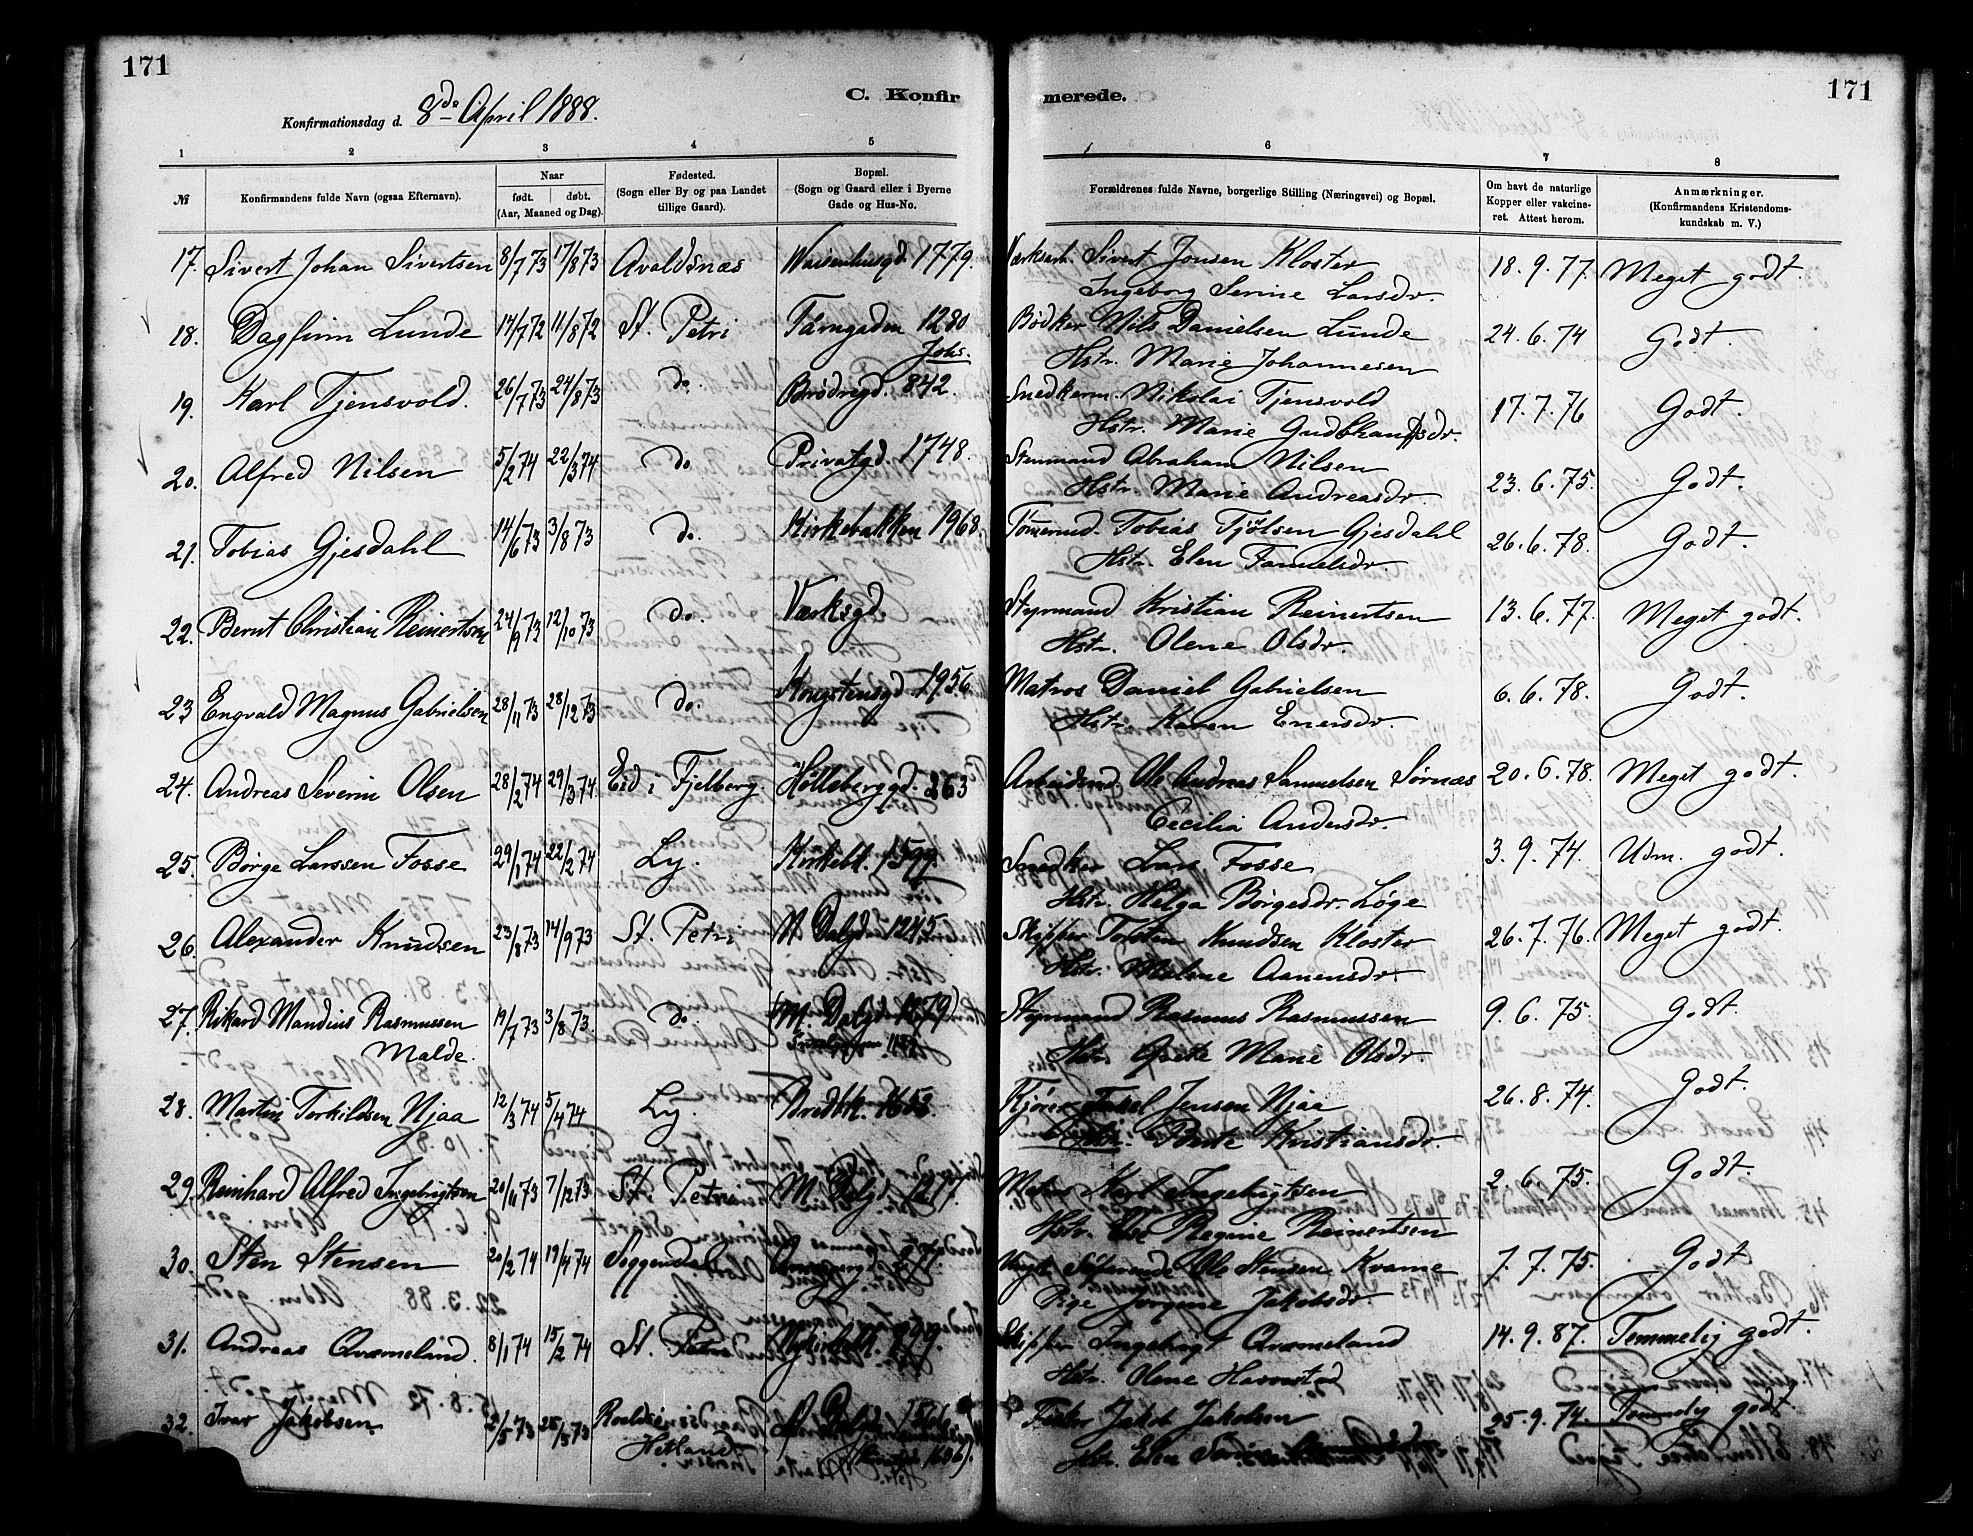 171
171
Konfirmationsdag d. 8de April 1888.
C. Konfirmerede.
1 2 3 4 5 6 7 8
№
Konfirmandens fulde Navn (ogsaa Efternavn).
Naar
født. døbt.
(Aar, Maaned og Dag).
Fødested.
(Sogn eller By og paa Landet
tillige Gaard).
Bopæl.
(Sogn og Gaard eller i Byerne
Gade og Hus-No.
Forældrenes fulde Navne, borgerlige Stilling (Næringsvei) og Bopæl.
Om havt de naturlige
Kopper eller vakcine-
ret. Attest herom.
Anmærkninger.
(Konfirmandens Kristendoms-
kundskab m. V.)
17. Sivert Johan Sivertsen 8/7 73 17/8 73 Avaldsnæs Waisenhusgd. 1779. Værksarb. Sivert Jonsen Kloster 18. 9. 77. Meget godt.
Ingeborg Serine Larsdr.
18. Dagfinn Lunde 17/7 72 11/8 72 St. Petri Tårngaden 1280 Bødker Nils Danielsen Lunde 24. 6. 74 Godt.
Johs. Hstr. Marie Johannesen
19. Karl Tjensvold. 26/7 73 24/8 73 do. Brødregd. 842. Snedkerm. Nikolai Tjensvold 17. 7. 76 Godt.
Hstr. Marie
20. Alfred Nilsen 5/2 74 22/3 74 do Privatgd. 1748. Stenmand Abraham Nilsen 23. 6. 75. Godt.
Hstr. Marie Andreasdr.
21. Tobias Gjesdahl 14/6 73 3/8 73 do. Kirkebakken 1968. Tømmermd. Tobias Tjølsen Gjesdahl 26. 6. 78. Godt.
Hstr. Elen
22. Bernt Christian Reinertsen 24/9 73 12/10 73 do. Værksgd. Styrmand Kristian Reinertsen 13. 6. 77. Meget godt.
Hstr. Olene Olsdr.
23 Engvald Magnus Gabrielsen 28/11 73 28/12 73 do. Kongstensgd 1956 Matros Daniel Gabrielsen 6. 6. 78. Godt.
Hstr. Karen
24. Andreas Severin Olsen 28/2 74 29/3 74 Eid i Fjelberg. Hølleberggd. 263 Arbeidsmd. Ole Andreas Samuelsen Sørnæs 20. 6. 78. Meget godt.
Cecilia Andersdr.
25. Børge Larssen Fosse 29/1 74 22/2 74 Ly. Kirkebk. 1599. Snedker Lars Fosse 3. 9. 74. Udm. godt.
Hstr. Helga Børgesdr. Løge
26. Alexander Knudsen 23/8 73 14/9 73 St. Petri N. Dalgd. 1245 Skipper Torsten Knudsen Kloster 26. 7. 76. Meget godt.
Hstr. Malene Aanensdr.
27. Rikard Mandius Rasmussen 19/7 73 3/8 73. do. (M. Dalgd. 1279) Styrmand Rasmus Rasmussen 9. 6. 75. Godt.
Malde. Hstr. Grete Marie Olsdr.
28. Martin Torkildsen Njaa 12/3 74 5/4 74 Ly. Bredbk. 1653 Kjører Jensen Njaa 26. 8. 74. Godt.
Hstr. Kristiansdr.
29. Reinhard Alfred Ingebrigtsen 20/11 73 7/12 73 St. Petri M. Dalgd. 1277. Matros Karl Ingebrigtsen 2. 6. 75. Godt.
Hstr. Else Regine Reinertsen
30. Sten Stensen 20/2 74 19/4 74 Soggendal 277. Ugft. Søfarende Ole Stensen Kvame 7. 7. 75. Godt
Pige Jorgine Jakobsdr.
31. Andreas Qvameland. 8/1 74 15/2 74 St. Petri 899. Skipper Ingebrigt Qvameland 14. 9. 87. Temmelig godt.
Hstr. Olene
32. Ivar Jakobsen. 2/5 73 25/5 73 M. Dalgd. 1566 Fisker Jakob Jakobsen 25. 9. 74. Temmelig godt.
Hetland. 1606). Hstr. Elen